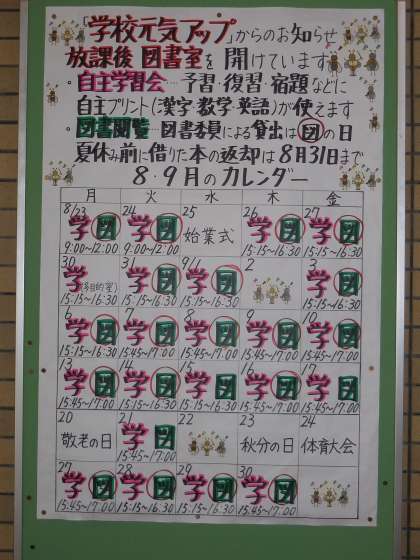 「学校元気アップ」からのお知らせ
放課後 図書室を 開けています
・自主学習会…予習・復習・宿題などに
自主プリント(漢字・数学・英語)が使えます
・図書閲覧…図書委員による貸出は図の日
夏休み前に借りた本の返却は8月31日まで
8・9月のカレンダー
月 火 水 木 金
8/23 24 25 26 27
学図 学図 始業式 学図 学図
9:00~12:00 9:00~12:00 15:15~16:30 15:15~16:30
30 31 9/1 2 3
学(多目的室) 学図 学図 学図
15:15~16:30 15:15~16:30 15:15~16:30 15:15~16:30
6 7 8 9 10
学図 学図 学図 学図 学図
15:15~16:30 15:45~17:00 15:45~17:00 15:45~17:00 15:45~17:00
13 14 15 16 17
学図 学図 学図 学図 学図
15:45~17:00 15:15~16:30 15:15~16:30 15:15~16:30 15:45~17:00
20 21 22 23 24
敬老の日 学図 秋分の日 体育大会
15:45~17:00
27 28 29 30
学図 学図 学図 学図
15:45~17:00 15:15~16:30 15:15~16:30 15:45~17:00